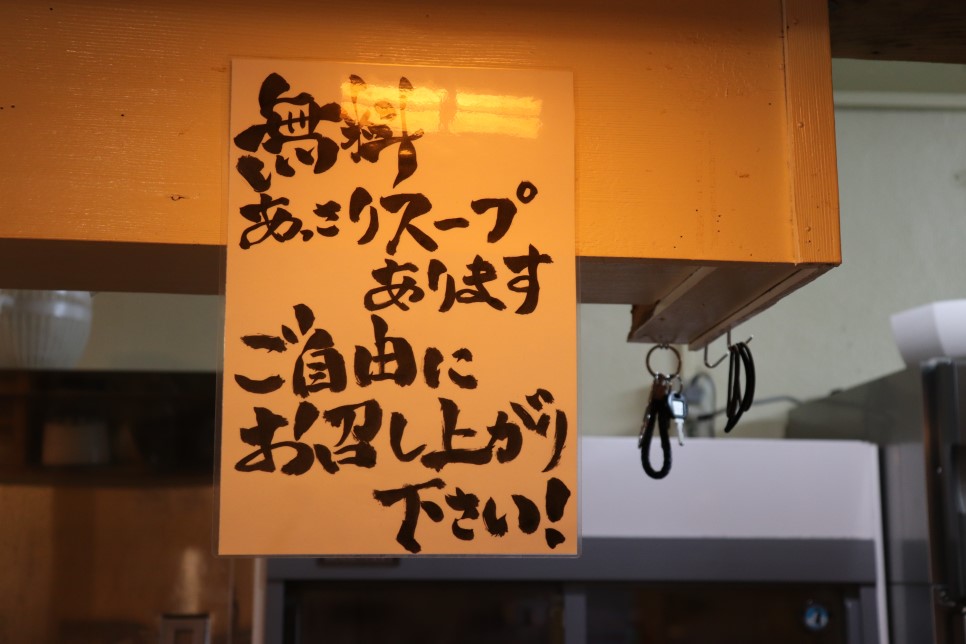 無料
あっさりスープ
あります
ご自由に
お召し上がり
下さい!